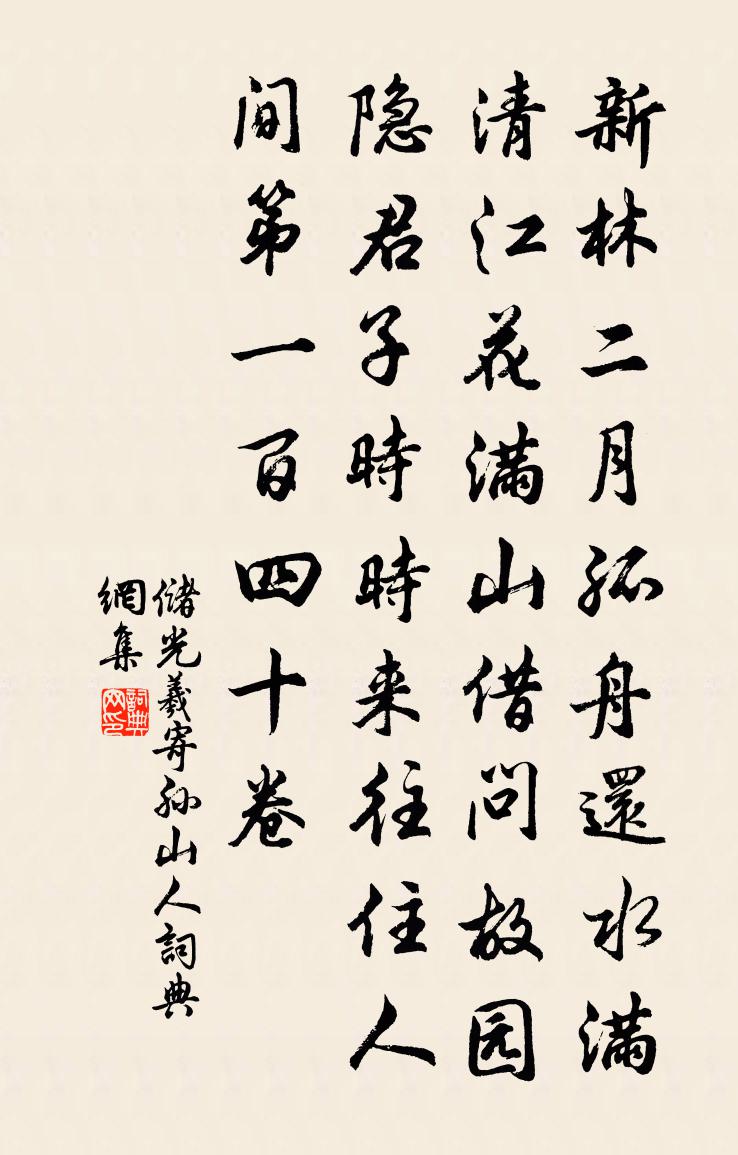 新林二月孤舟還水满
清江花满山借问故园
隐君子時時来往住人
间第一百四十卷
儲光羲寄孙山人詞典
網集
詞典网印